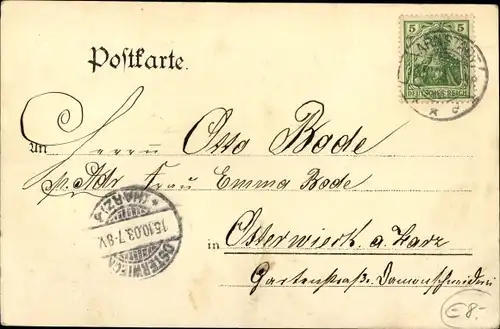 5 5
DEUTSCHES REICH
Postkarte.
An Herrn Otto Bode
p. Adr Frau Emma Bode
in Osterwieck a. Harz
Gartenstraße. Damenschneiderei
OSTERWIECK
15.10.03.7-8V.
* (HARZ) *
€ 8-